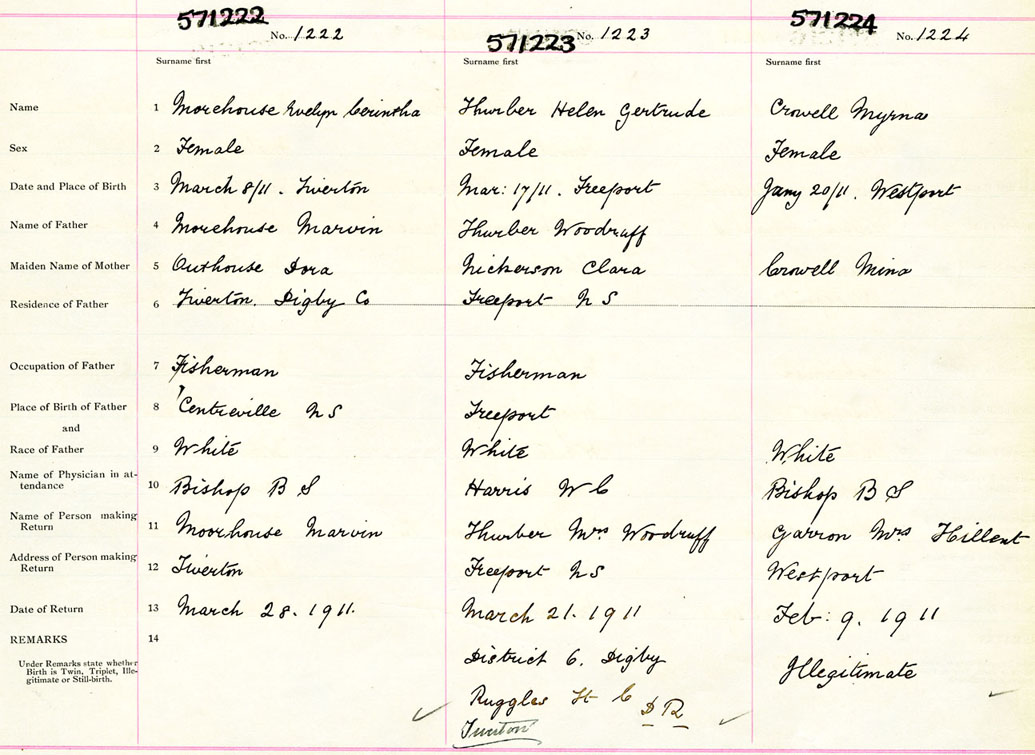 571222 571223 571224
No. 1222 No. 1223 No. 1224
Surname first Surname first Surname first
Name 1 Morehouse Evelyn Cerintha Thurber Helen Gertrude Crowell Myrna
Sex 2 Female Female Female
Date and Place of Birth 3 March 8/11. Tiverton Mar: 17/11. Freeport Jany 20/11. Westport
Name of Father 4 Morehouse Marvin Thurber Woodruff
Maiden Name of Mother 5 Outhouse Dora Nickerson Clara Crowell Mina
Residence of Father 6 Tiverton. Digby Co Freeport N S
Occupation of Father 7 Fisherman Fisherman
Place of Birth of Father 8 Centreville N S Freeport
and
Race of Father 9 White White White
Name of Physician in at-
tendance 10 Bishop B S Harris W C Bishop B S
Name of Person making
Return 11 Moorhouse Marvin Thurber Mrs Woodruff Garron Mrs
Address of Person making
Return 12 Tiverton Freeport N S Westport
Date of Return 13 March 28. 1911. March 21. 1911 Feb: 9. 1911
REMARKS 14
Under Remarks state whether
Birth is Twin, Triplet, Ille-
gitimate or Still-birth.
District 6. Digby Illegitimate
Ruggles H C D R